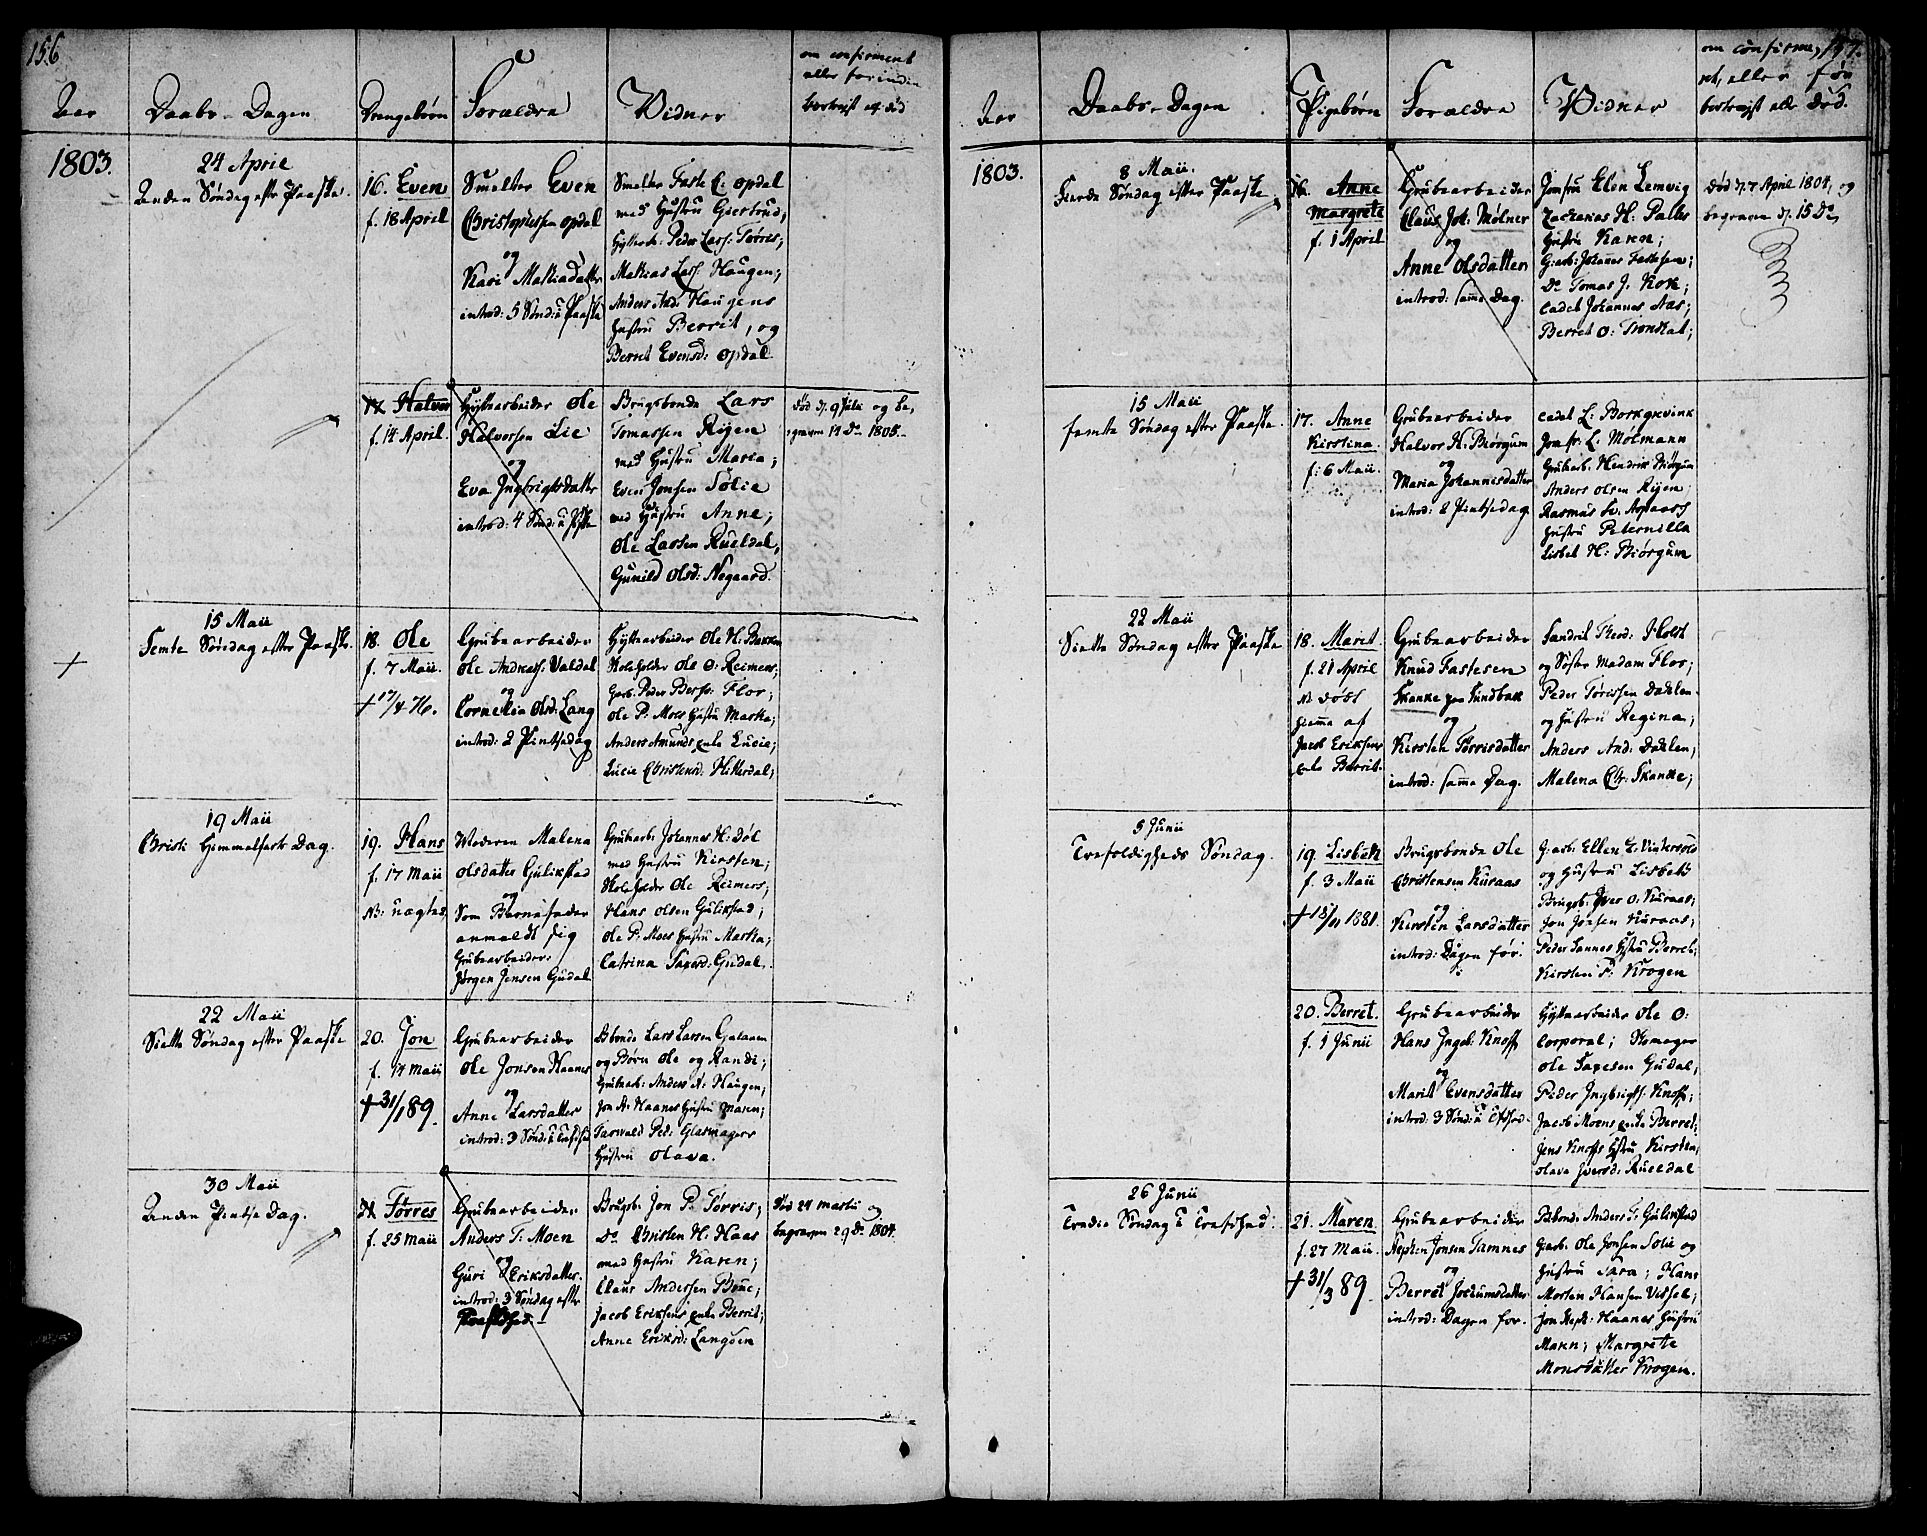 156
Aar
Daabs-Dagen
Drengebørn
Forældre
Vidner
om confirmert
eller forinden
bortreist ell død
1803.
24 April
Anden Søndag efter Paaske.
16. Even
f. 18 April
Smelter Even
Christophersen Opdal
og
Kari Mathiadatter
introd: 5 Sønd: a Paaske
Smelter Faste E: Opdal
med Hustru Giertrud;
Hyttearb: Peder Lars: Tørres;
Mathias Lars: Haugen;
Anders And: Haugens
Hustru Berrit, og
Berret Evensd: Opdal
17. Halvor
f. 14 April.
Hyttearbeider Ole
Halvorsen Lie
og
Eva Ingbrigtsdatter
introd: 4 Sønd: a Paaske
Brugsbonde Lars
Tomassen Rÿen
med Hustru Maria;
Even Jonsen Sølie
med Hustru Anne;
Ole Larsen Rueldal,
Gunild Olsd: Nøgaard.
død d. 9 Julii og be,
graven 14 Do 1805.
15 Maii
Femte Søndag efter Paaske.
18. Ole
f. 7 Maii.
+ 17/4 76.
Grubearbeider
Ole Andreas: Valdal
og
Cornelia Olsd: Lang
introd: 2 Pintsedag
Hyttearbeider Ole H: Bakken
Skoleholder Ole O: Reimers;
Garb. Peder Berss: Flor;
Ole P: Moes Hustru Marka;
Anders Amunds enke Lucie;
Lucie Christensd: Hitterdal;
19 Maii
Christi Himmelfarts Dag.
19. Hans
f. 17 Maii
NB: uægte.
Moderen Malena
Olsdatter Gulikstad
og
Som Barnefader
anmeldt sig
Grubearbeider
Jørgen Jensen Gudal
Grubearb: Johannes H: Døl
med Hustru Kirsten;
Skoleholder Ole Reimers;
Hans Olsen Gulikstad;
Ole P: Moes Hustru Marka;
Catrina Taxerd: Gudal.
22 Maii
Siette Søndag efter Paaske
20. Jon
f. 14 Maii
+ 31/1 89.
Grubearbeider
Ole Jonsen Haanes
og
Anne Larsdatter
introd: 3 Sønd: a Trefoldhed
Bbonde Lars Larsen Galaaen
og Børn Ole og Randi;
Grubearb: Anders A: Haugen;
Jon A: Haanes Hustru Maren;
Tarvald Ped: Glasmagers
Hustru Olava.
30 Maii
Anden Pintse Dag.
21. Tørres
f. 25 Maii
Grubearbeider
Anders T: Moen
og
Guri Eriksdatter.
introd: 3 Søndag efter
Trefoldhed.
Brugsb. Jon P: Tørris;
Do Christen H: Haas
med Hustru Karen;
Claus Andersen Böue;
Jacob Eriksens enke Berrit;
Anne Eriksd: Langøen
død 24 Martii og
begraven 29 Do 1804.
157.
Aar
Daabs-Dagen
Pigebørn
Forældre
Vidner
om confirme,
ret, eller før
bortreist elle død.
1803.
8 Maii.
Fierde Søndag efter Paaske
16. Anne
Margrete
f. 1 April
Grubearbeider
Claus Joh: Mølner
og
Anne Olsdatter
introd: samme Dag.
Jomfru Elen Lemvig
Zacharias H: Pahls
Hustru Karen;
Giarb: Johannes Fastesen;
Do Tomas J. Kok;
Cadet Johannes Aas;
Berret O: Trondhat;
død d. 7 April 1804, og
begraven d. 15 Do
15 Maii
femte Søndag efter Paaske.
17. Anne
Kirstina.
f: 6 Maii.
Grubearbeider
Halvor H. Biørgum
og
Maria Johannisdatter
introd: 2 Pintsedag
Cadet L: Borkgkvink
Jomfr: L. Mølmann
Grubarb. Hendrik Biørgum
Anders Olsen Rÿen
Rasmus Hustru Peternilla
Lisbet H: Biørgum
22 Maii
Siette Søndag efter Paaske
18. Maret
f. 21 April
NB døbt
hiemme af
Jacob Eriksens
enke Berrit.
Grubearbeider
Knud Fastesen
Skanke paa Sundbak
og
Kirsten Tørrisdatter
introd: samme Dag.
Sandril Theod: Holst
og Søster Madam Flor;
Peder Tørissen Dahlen
og Hustru Regina;
Anders And: Dahlen;
Malena Chr: Skanke;
5 Junii
Trefoldigheds Søndag.
19. Lisbeth
f. 3 Maii
+ 18/11 1881.
Brugsbonde Ole
Christensen Kuraas
og
Kirsten Larsdatter
introd: Dagen før.
Garb: Ellen E: Vintervold
og Hustru Lisbeth
Brugsb: Iver O: Kuraas;
Jon Jonsen Kuraas;
Peder Sannes Hstru Berret;
Kirsten P: Krogen
20. Berret.
f. 1 Junii
Grubearbeider
Hans Ingeb: Knoff
og
Marit Evensdatter
introd: 3 Sønd: a Trefhed.
Hyttearbeider Ole O:
Corporal; Skomager
Ole Taxesen Gudal;
Peder Ingbrigts: Knoff;
Jacob Moens enke Berret;
Jens Knoffs Hstru Kirsten;
Olava Iversd: Rueldal
26 Junii
Tredie Søndag e Trefdhed:
21. Maren
f. 27 Maii.
+ 31/3 89.
Grubearbeider
Stephen Jonsen Tamnes
og
Berret Jochumsdatter
introd: Dagen før.
Bbond: Anders T: Gulikstad
Garb. Ole Jonsen Sølie og
Hustru Sara; Hans
Morten Hansen Vissel;
Jon Steph: Haanes Hustru
Maren; Margrete
Monsdatter Krogen.